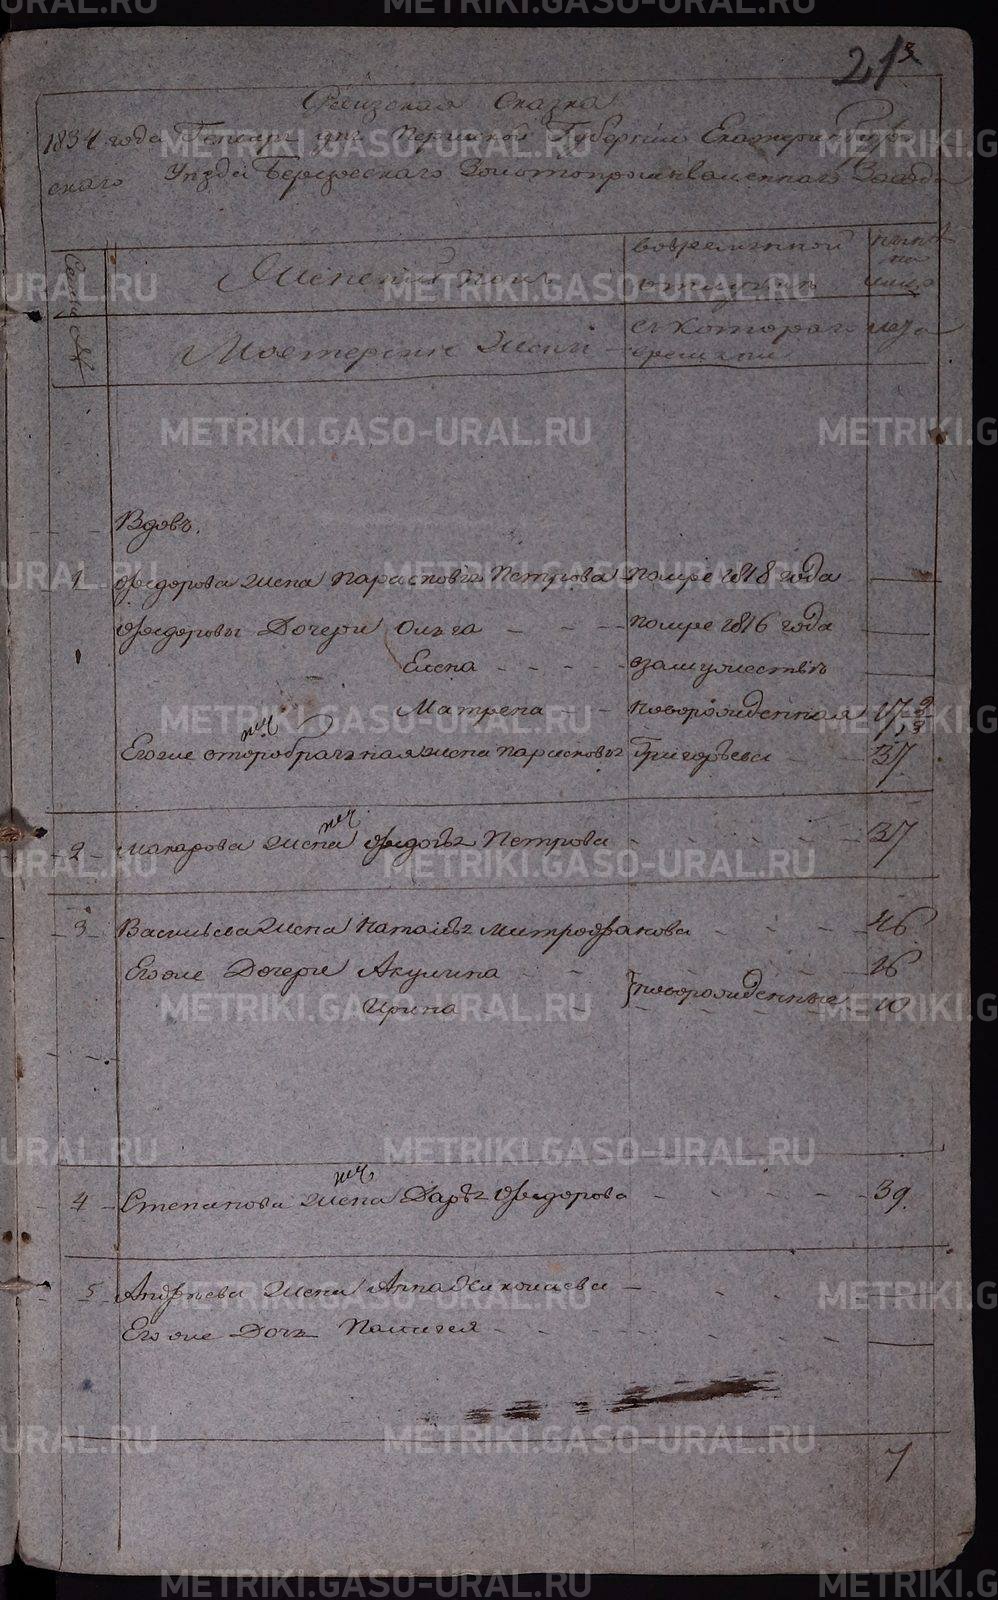 21
Ревизская Сказка
1834 года Генваря дня Пермской Губернии Екатеринбург
скаго Уезда Березовскаго Золотопромышленнаго Завода
Семьи №
Женский пол
вовременной отлучке
ныне на лицо
Мастерские жены
с котораго времени
лета
Вдовъ.
1 Федорова жена Парасковья Петрова помере 1818 года
Федоровы Дочери Ольга - - - помере 1816 года
Елена - - - - взамужествѣ
Матрена - - новорожденная 17
Егоже второбрачная жена Парасковья Григорьева - - 37
2 Макарова жена Федотья Петрова - - - - 37
3 Васильева жена Наталья Митрофанова - - - - 46
Егоже Дочери Акулина - - 16
Ирина - - новорожденные 10
4 Степанова жена Дарья Федорова - - - - 39.
5 Андреева жена Анна Николаева -
Егоже Дочь Палагея - - - -
7
METRIKI.GASO-URAL.RU